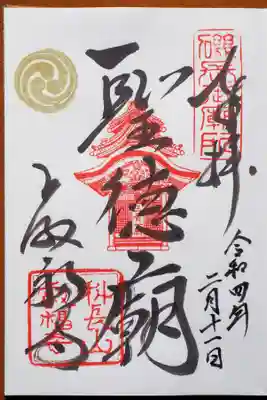 奉拝
令和四年
二月十一日
聖徳廟
叡福寺
科長山
叡福寺